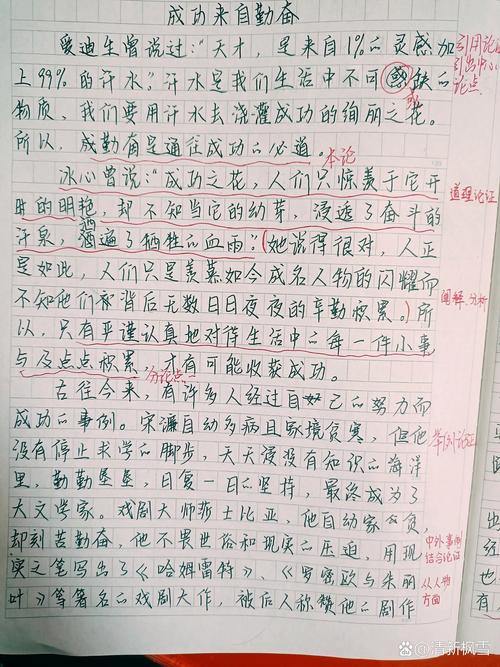 成功来自勤奋
爱迪生曾说过:“天才,是来自1%的灵感加
上99%的汗水。”汗水是我们生活中不可或缺的
物质,我们要用汗水去浇灌成功的绚丽之花。
所以,成勤奋是通往成功的必道。
本论
冰心曾说:“成功之花,人们只惊羡于它开
时的明艳,却不知当它的幼芽,浸透了奋斗的
汗泉,洒遍了牺牲的血雨。”她说得很对,人正
是如此,人们只是羡慕如今成名人物的闪耀而
不知他们背后无数日日夜夜的辛勤积累。所
以,只有严谨认真地对待生活中的每一件小事
与及点点积累,才有可能收获成功。
分论点
古往今来,有许多人经过自己的努力而
成功的事例。宋濂自幼多病且家境贫寒,但他
没有停止求学的脚步,天天浸没有知识的海洋
里,勤勤垦垦,日复一日的坚持,最终成为了
大文学家。戏剧大师莎士比亚,他自幼家贫,
却刻苦勤奋,他不畏世俗和现实的压迫,用现
实之笔写出了《哈姆雷特》、《罗密欧与朱丽
叶》等著名的戏剧大作,被后人称赞他的剧作
引用论证
引出中心
论点
道理论证
阐释、分析
举例论证
中外事例
结合论证
从人物
方面
@清新枫雪